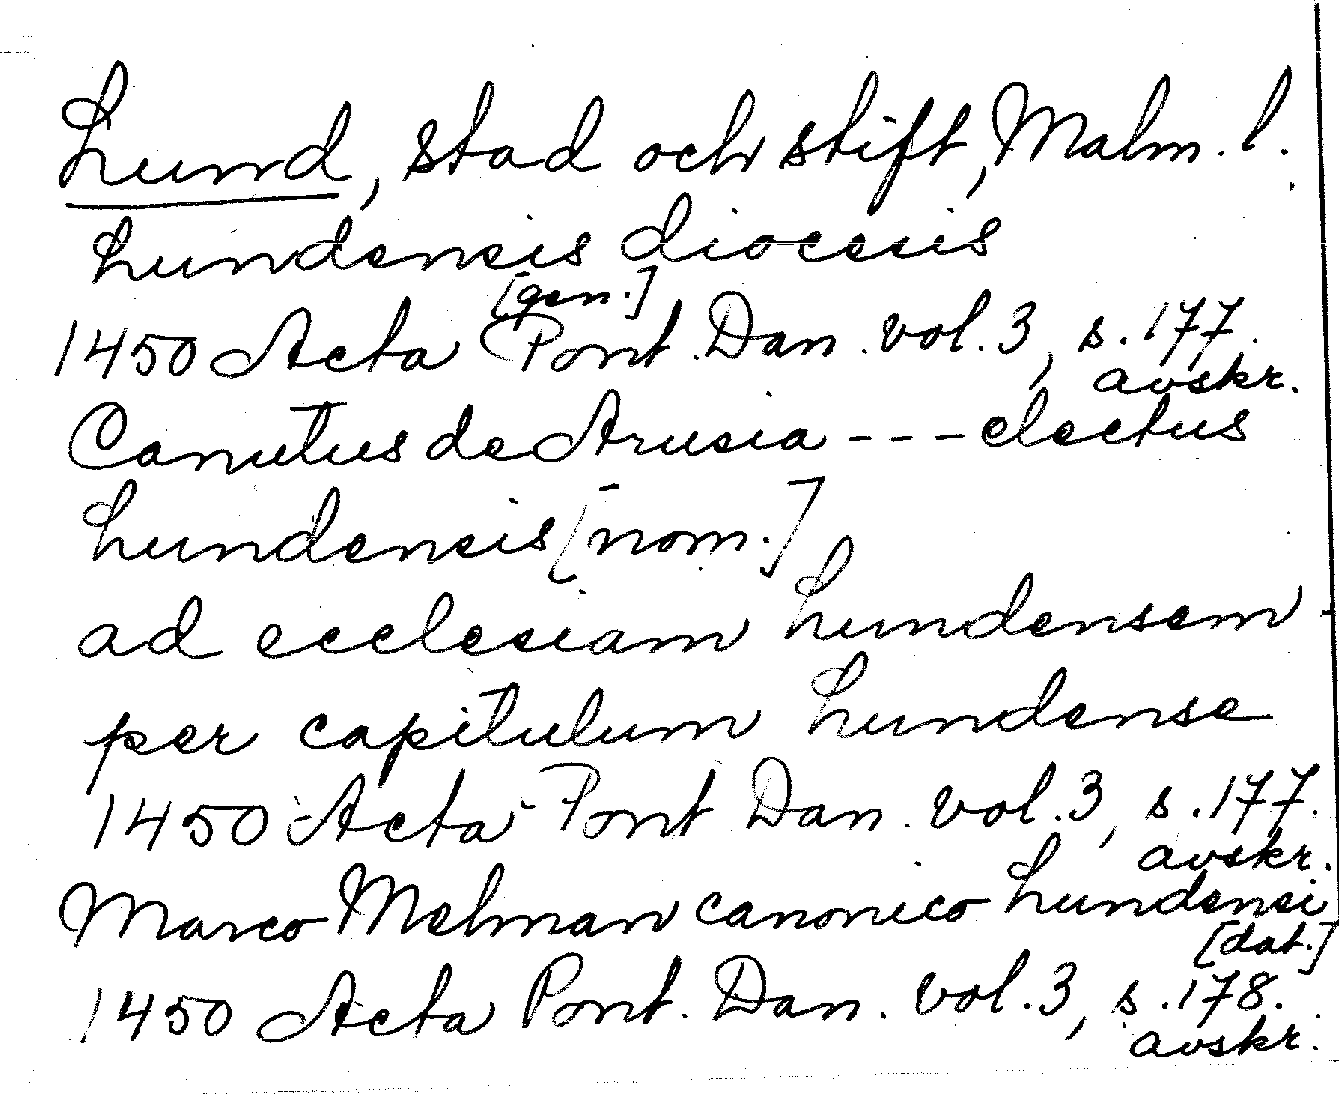 Lund, stad och stift, Malm. l.
Lundensis diocesis
[gen.]
1450 Acta Pont. Dan. vol. 3, s. 177.
avskr.
Canutus de Arusia --- electus
Lundensis [nom.]
ad ecclesiam Lundensem -
per capitulum Lundense
1450 Acta Pont Dan. vol. 3, s. 177.
avskr.
Marco Melman canonico Lundensi
[dat.]
1450 Acta Pont. Dan. vol. 3, s. 178.
avskr.